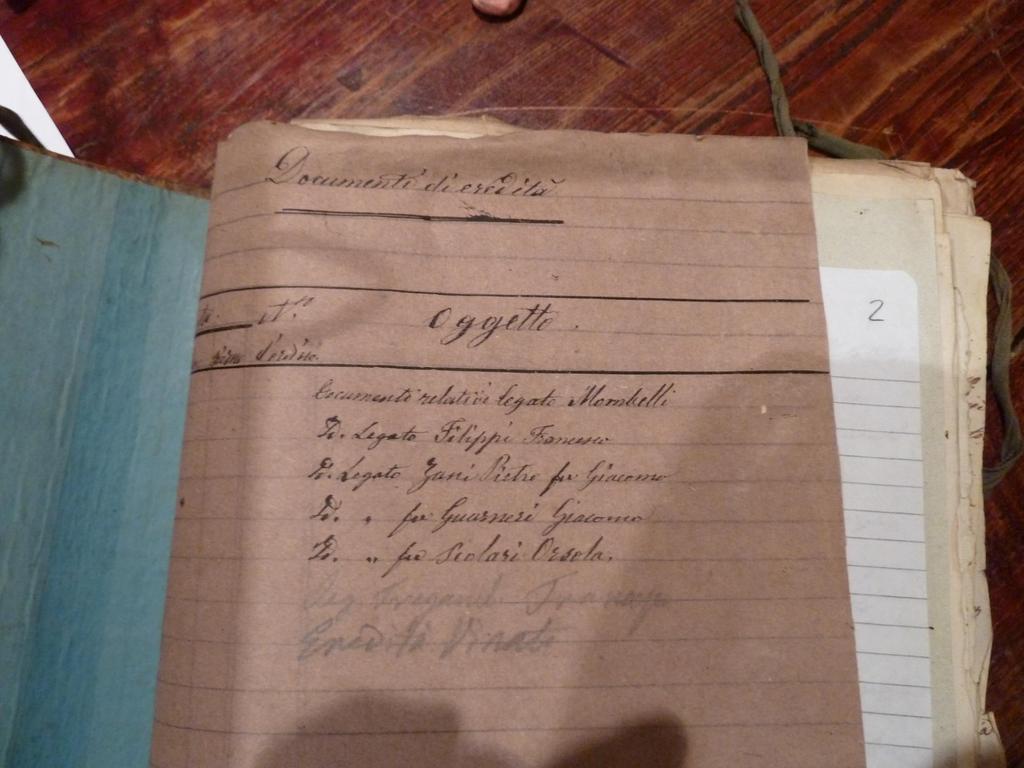 Documenti di eredità
N.ro Oggetto.
d'ordine.
Documenti relativi legato Mombelli
Id. Legato Filippi Francesco
Id. Legato Zani Pietro fu Giacomo
Id. „ fu Guarneri Giacomo
Id. „ fu Scolari Orsola.
Eredità
2